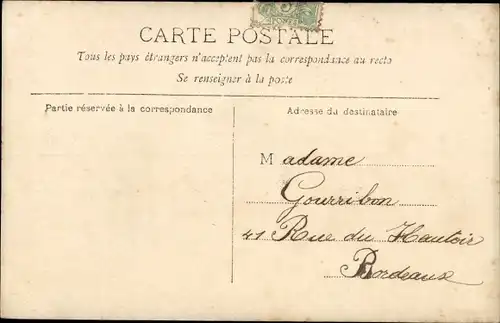 CARTE POSTALE
Tous les pays étrangers n'acceptent pas la correspondance au recto
Se renseigner à la poste
Partie réservée à la correspondance
Adresse du destinataire
Madame
Gourribon
41 Rue du Hautoir
Bordeaux